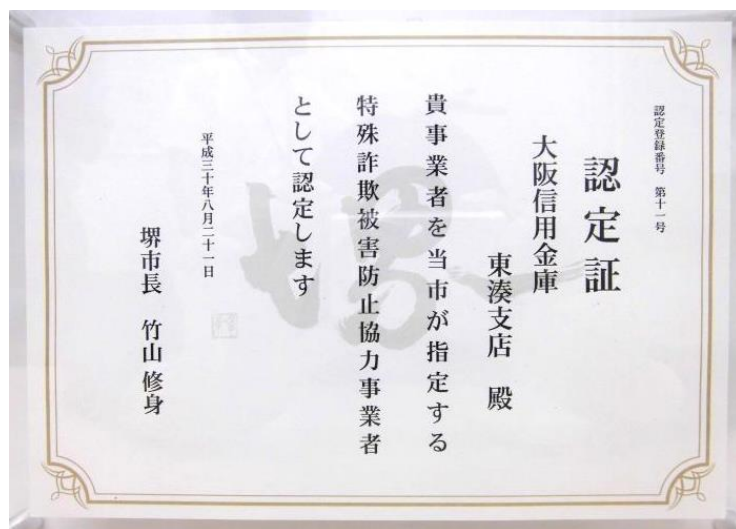 認定登録番号 第十一号
認定証
大阪信用金庫
東湊支店 殿
貴事業者を当市が指定する
特殊詐欺被害防止協力事業者
として認定します
平成三十年八月二十一日
堺市長 竹山修身